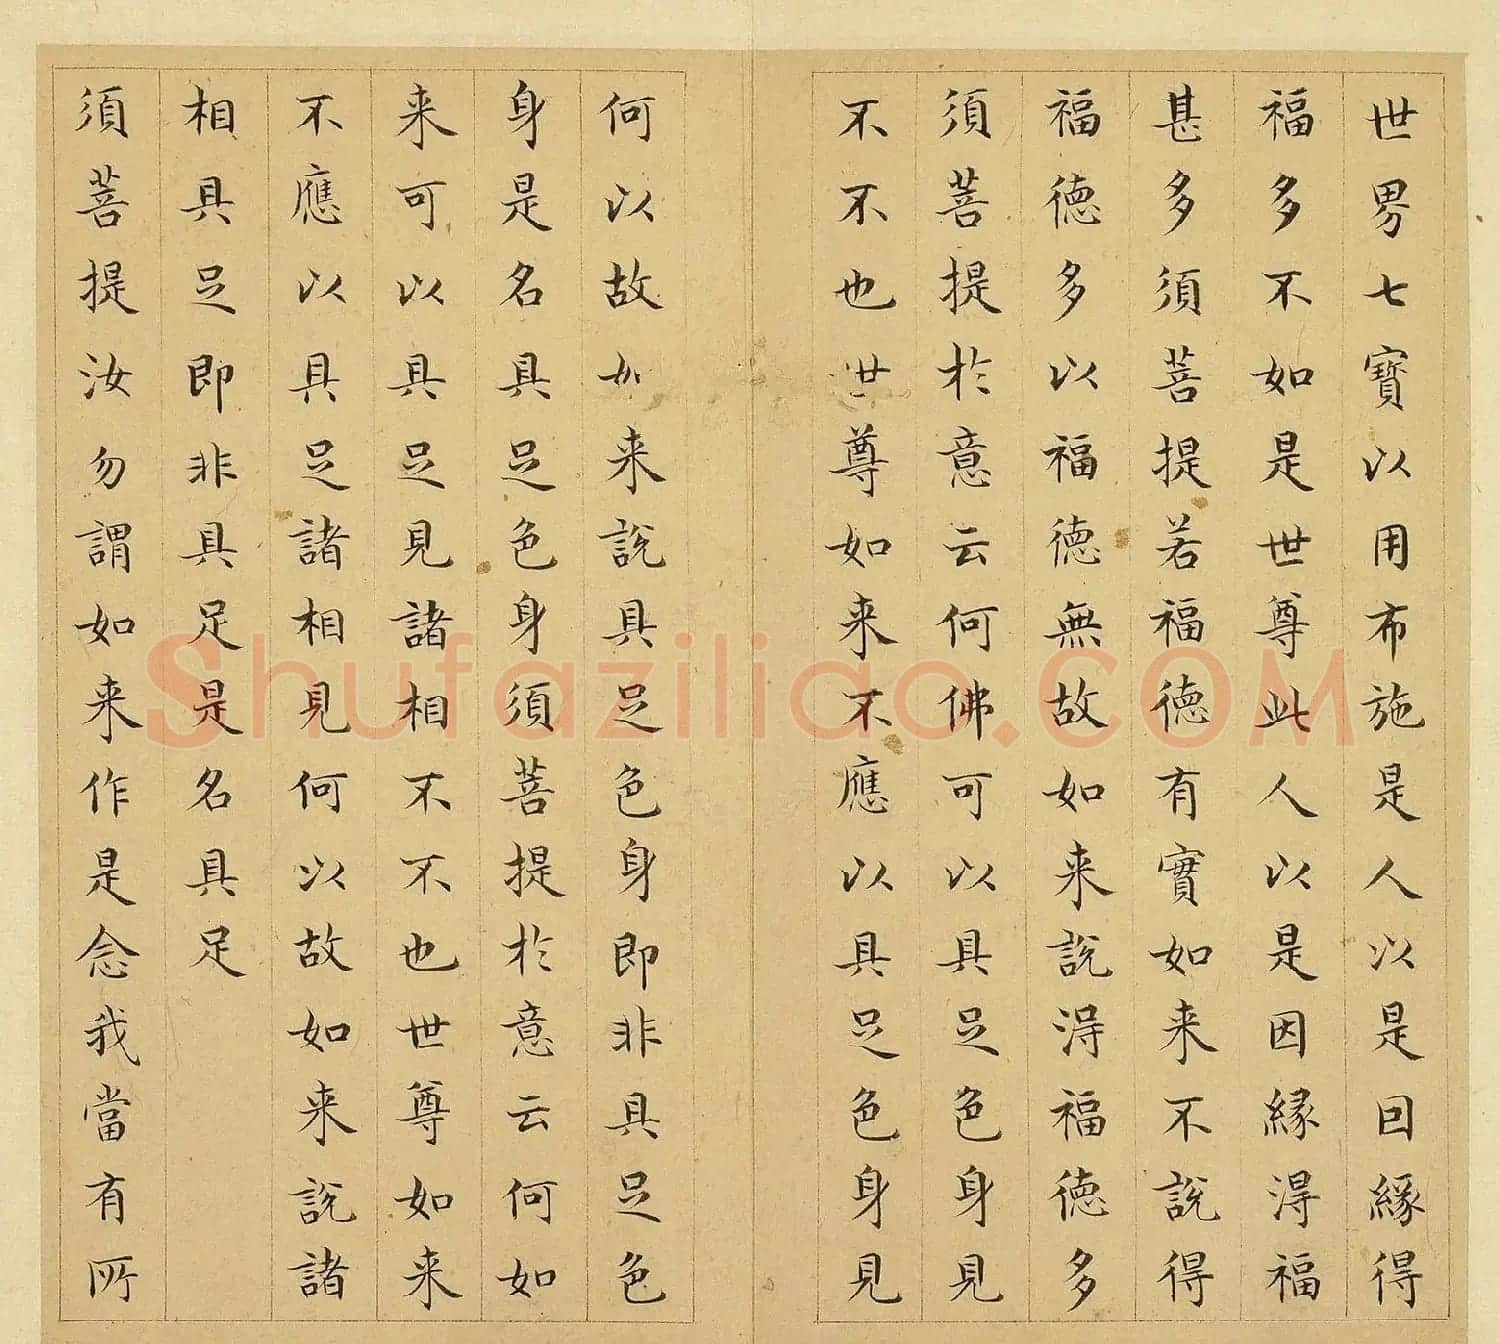 世界七寶以用布施是人以是因緣得
福多不如是世尊此人以是因緣得福
甚多須菩提若福德有實如来不說得
福德多以福德無故如来說得福德多
須菩提於意云何佛可以具足色身見
不不也世尊如来不應以具足色身見
何以故如来說具足色身即非具足色
身是名具足色身須菩提於意云何如
来可以具足見諸相不不也世尊如来
不應以具足諸相見何以故如来說諸
相具足即非具足是名具足
須菩提汝勿謂如来作是念我當有所
Shufaziliao.COM